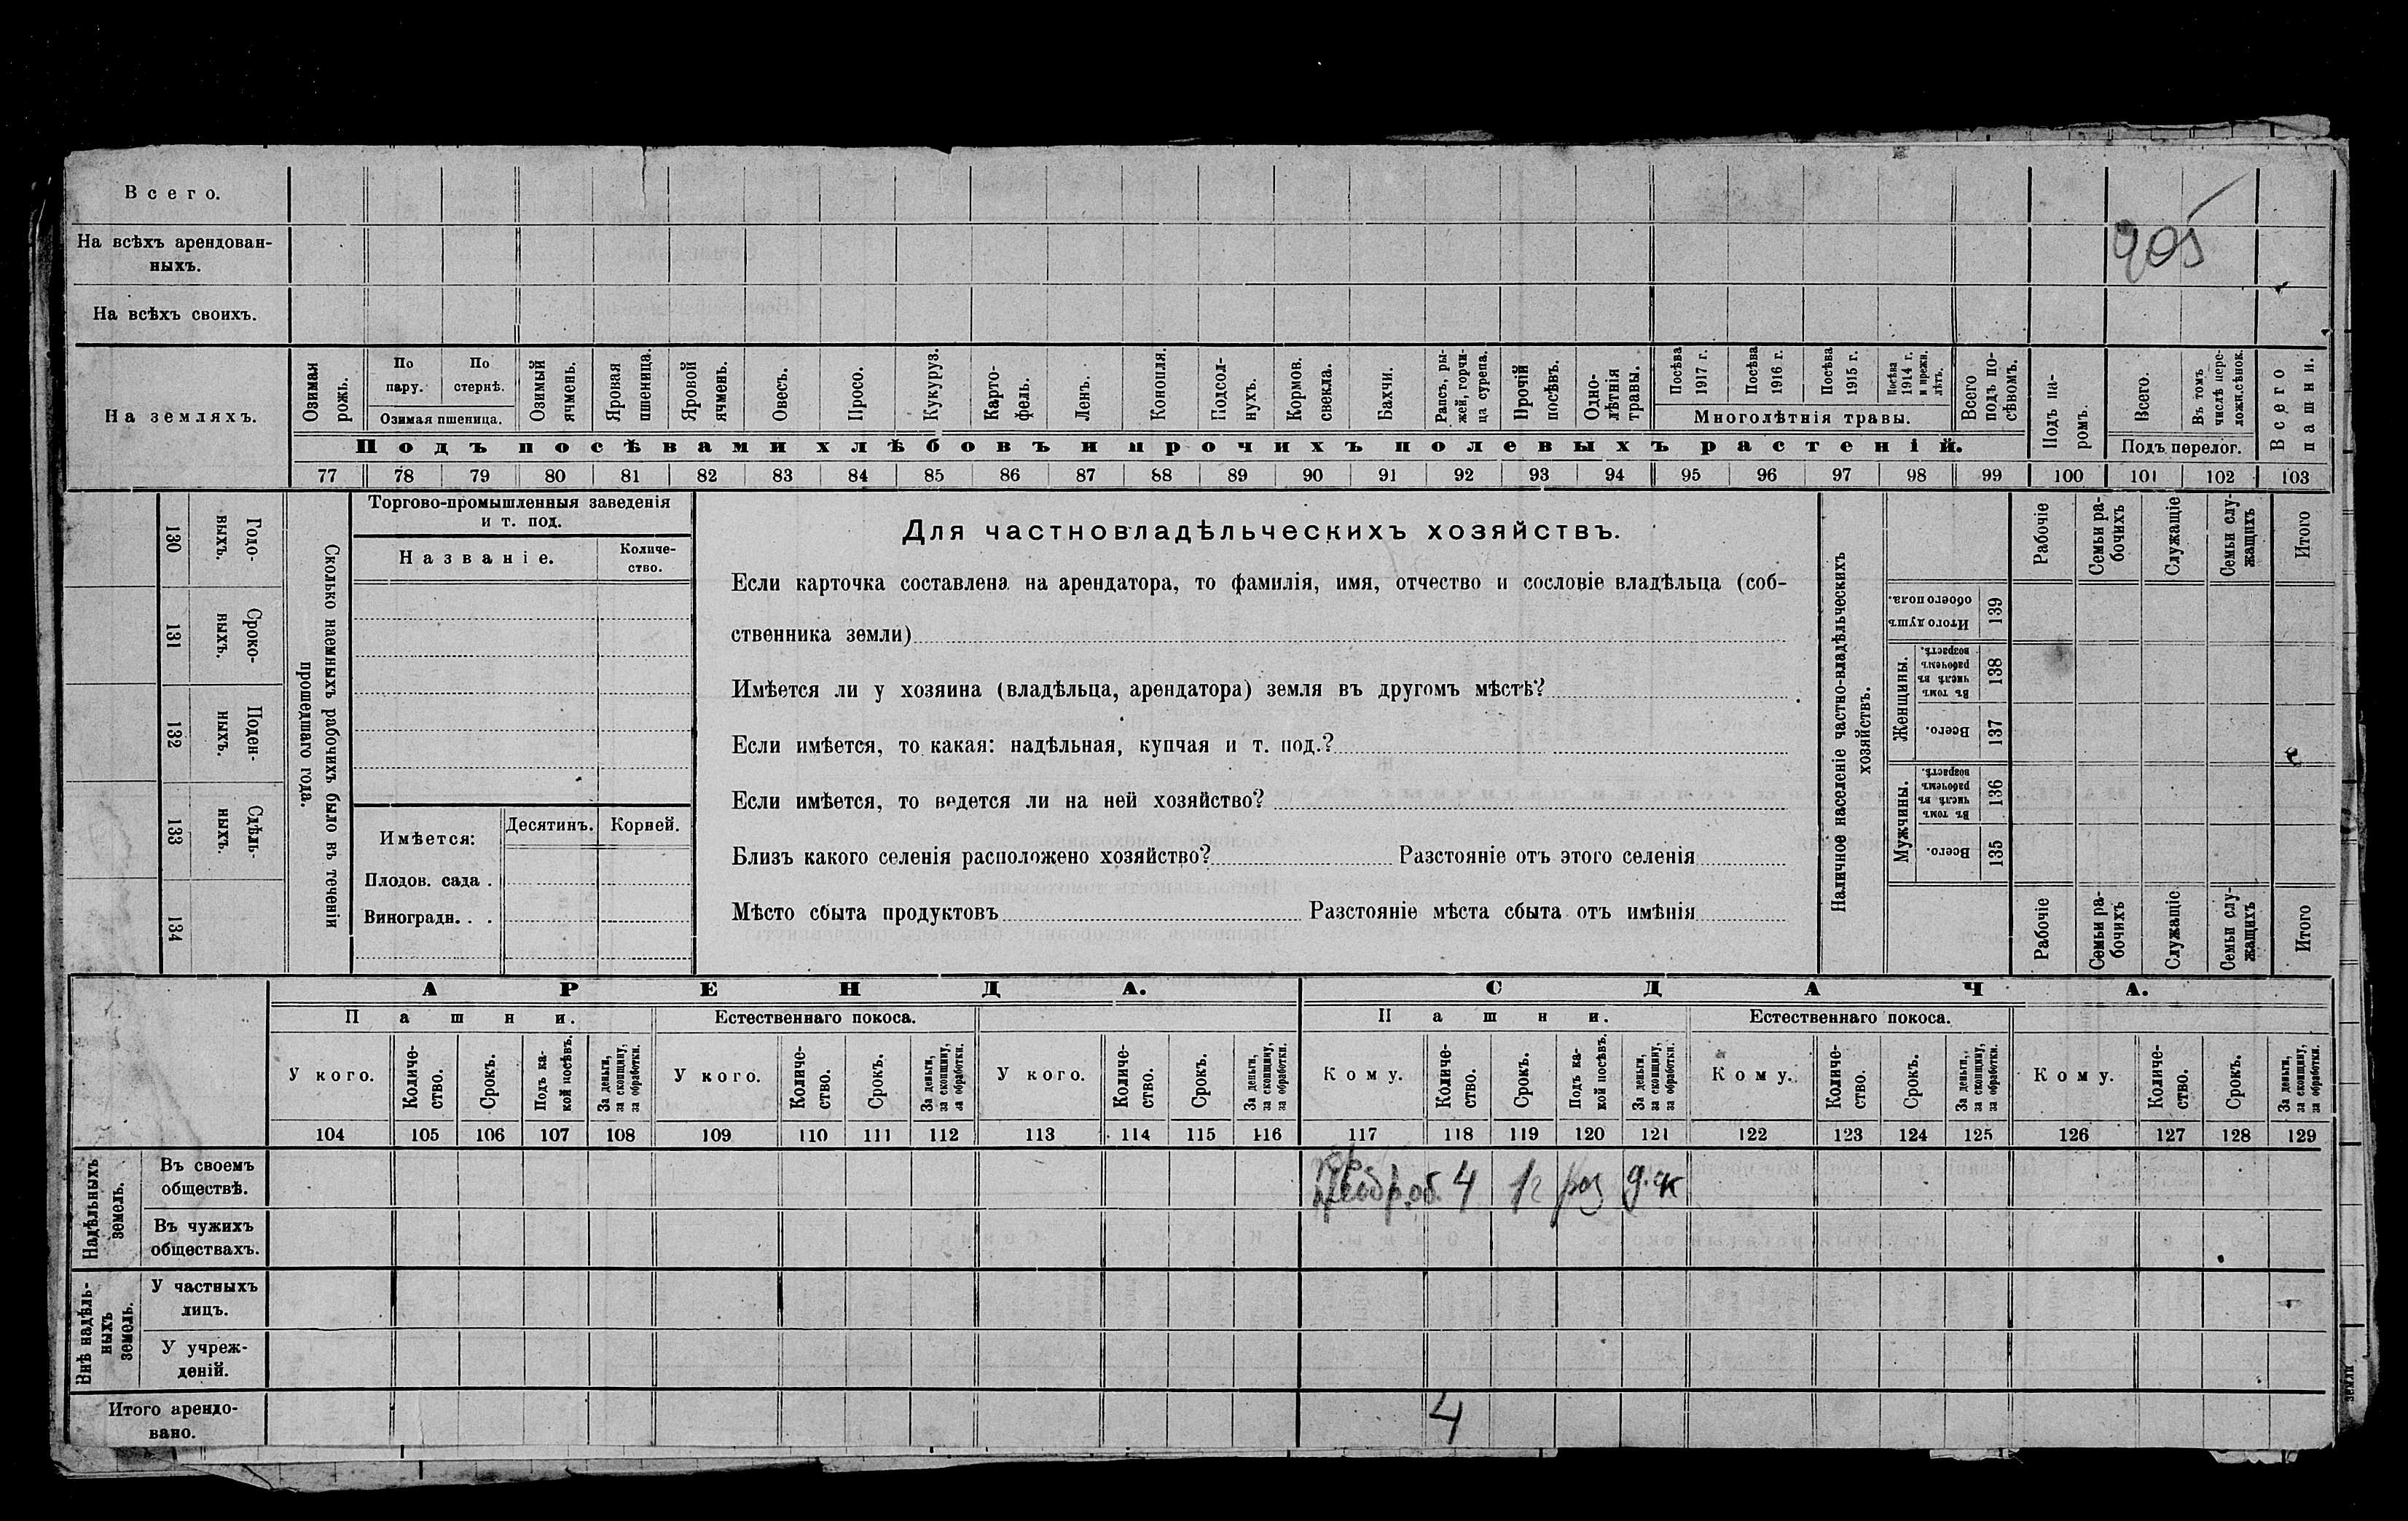 Всего.
905
На всѣхъ арендован-
ныхъ.
На всѣхъ своихъ.
На земляхъ.
Озимая
рожь.
По
пару.
По
стернѣ.
Озимая пшеница.
Озимый
ячмень.
Яровая
пшеница.
Яровой
ячмень.
Овесъ.
Просо.
Кукуруз.
Карто-
фель.
Ленъ.
Конопля.
Подсол-
нухъ.
Кормов.
свекла.
Бахчи.
Рапсъ, ры-
жей, горчи-
ца сурепа.
Прочій
посѣвъ.
Одно-
лѣтнія
травы.
Посѣва
1917 г.
Посѣва
1916 г.
Посѣва
1915 г.
Посѣва
1914 г.
и прежн.
лѣтъ.
Многолѣтнія травы.
Всего
подъ по-
сѣвомъ.
Подъ па-
ромъ.
Всего.
Въ томъ
числѣ пере-
ложн.сѣнок.
Подъ перелог.
Всего
пашни.
Подъ посѣвами хлѣбовъ и прочихъ полевыхъ растеній.
77 78 79 80 81 82 83 84 85 86 87 88 89 90 91 92 93 94 95 96 97 98 99 100 101 102 103
130
Годо-
выхъ.
131
Сроко-
ныхъ.
132
Поден-
ныхъ.
133
Сдѣль-
ныхъ.
134
Сколько наемныхъ рабочихъ было въ теченіи
прошедшаго года.
Торгово-промышленныя заведенія
и т. под.
Названіе.
Количе-
ство.
Имѣется:
Десятинъ.
Корней.
Плодов. сада .
Виноградн. . .
Для частновладѣльческихъ хозяйствъ.
Если карточка составлена на арендатора, то фамилія, имя, отчество и сословіе владѣльца (соб-
ственника земли)
Имѣется ли у хозяина (владѣльца, арендатора) земля въ другомъ мѣстѣ?
Если имѣется, то какая: надѣльная, купчая и т. под.?
Если имѣется, то ведется ли на ней хозяйство?
Близъ какого селенія расположено хозяйство? Разстояніе отъ этого селенія
Мѣсто сбыта продуктовъ Разстояніе мѣста сбыта отъ имѣнія
Наличное населеніе частно-владѣльческихъ
хозяйствъ.
Рабочіе
Семьи ра-
бочихъ
Служащіе
Семьи слу-
жащихъ
Итого
Итого душъ
обоего пола.
139
Женщины.
Въ томъ
числѣ въ
рабочемъ
возрастѣ.
138
Всего.
137
Мужчины.
Въ томъ
числѣ въ
рабочемъ
возрастѣ.
136
Всего.
135
Рабочіе
Семьи ра-
бочихъ
Служащіе
Семьи слу-
жащихъ
Итого
АРЕНДА.
СДАЧА.
Пашни.
Естественнаго покоса.
Пашни.
Естественнаго покоса.
У кого.
Количе-
ство.
Срокъ.
Подъ ка-
кой посѣвъ.
За деньги,
за скопщину,
за обработки.
У кого.
Количе-
ство.
Срокъ.
За деньги,
за скопщину,
за обработки.
У кого.
Количе-
ство.
Срокъ.
За деньги,
за скопщину,
за обработки.
Кому.
Количе-
ство.
Срокъ.
Подъ ка-
кой посѣвъ.
За деньги,
за скопщину,
за обработки.
Кому.
Количе-
ство.
Срокъ.
За деньги,
за скопщину,
за обработки.
Кому.
Количе-
ство.
Срокъ.
За деньги,
за скопщину,
за обработки.
104 105 106 107 108 109 110 111 112 113 114 115 116 117 118 119 120 121 122 123 124 125 126 127 128 129
Надѣльныхъ
земель.
Въ своемъ
обществѣ.
об. 4 1г
Въ чужихъ
обществахъ.
Внѣ надѣль-
ныхъ
земель.
У частныхъ
лицъ.
У учреж-
деній.
Итого арендо-
вано.
4
земли